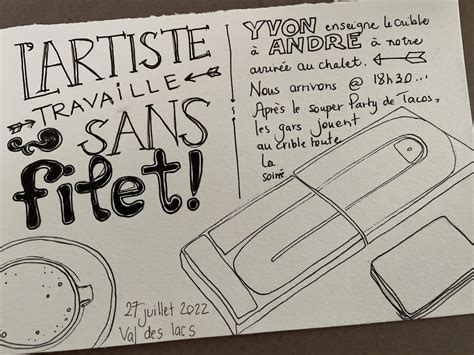 L'ARTISTE
TRAVAILLE
SANS
filet!
YVON enseigne le crible
à ANDRE à notre
arrivée au chalet.
Nous arrivons @ 18h30...
Après le souper Party de Tacos,
les gars jouent
au crible toute
La
soirée
27 juillet 2022
Val des lacs